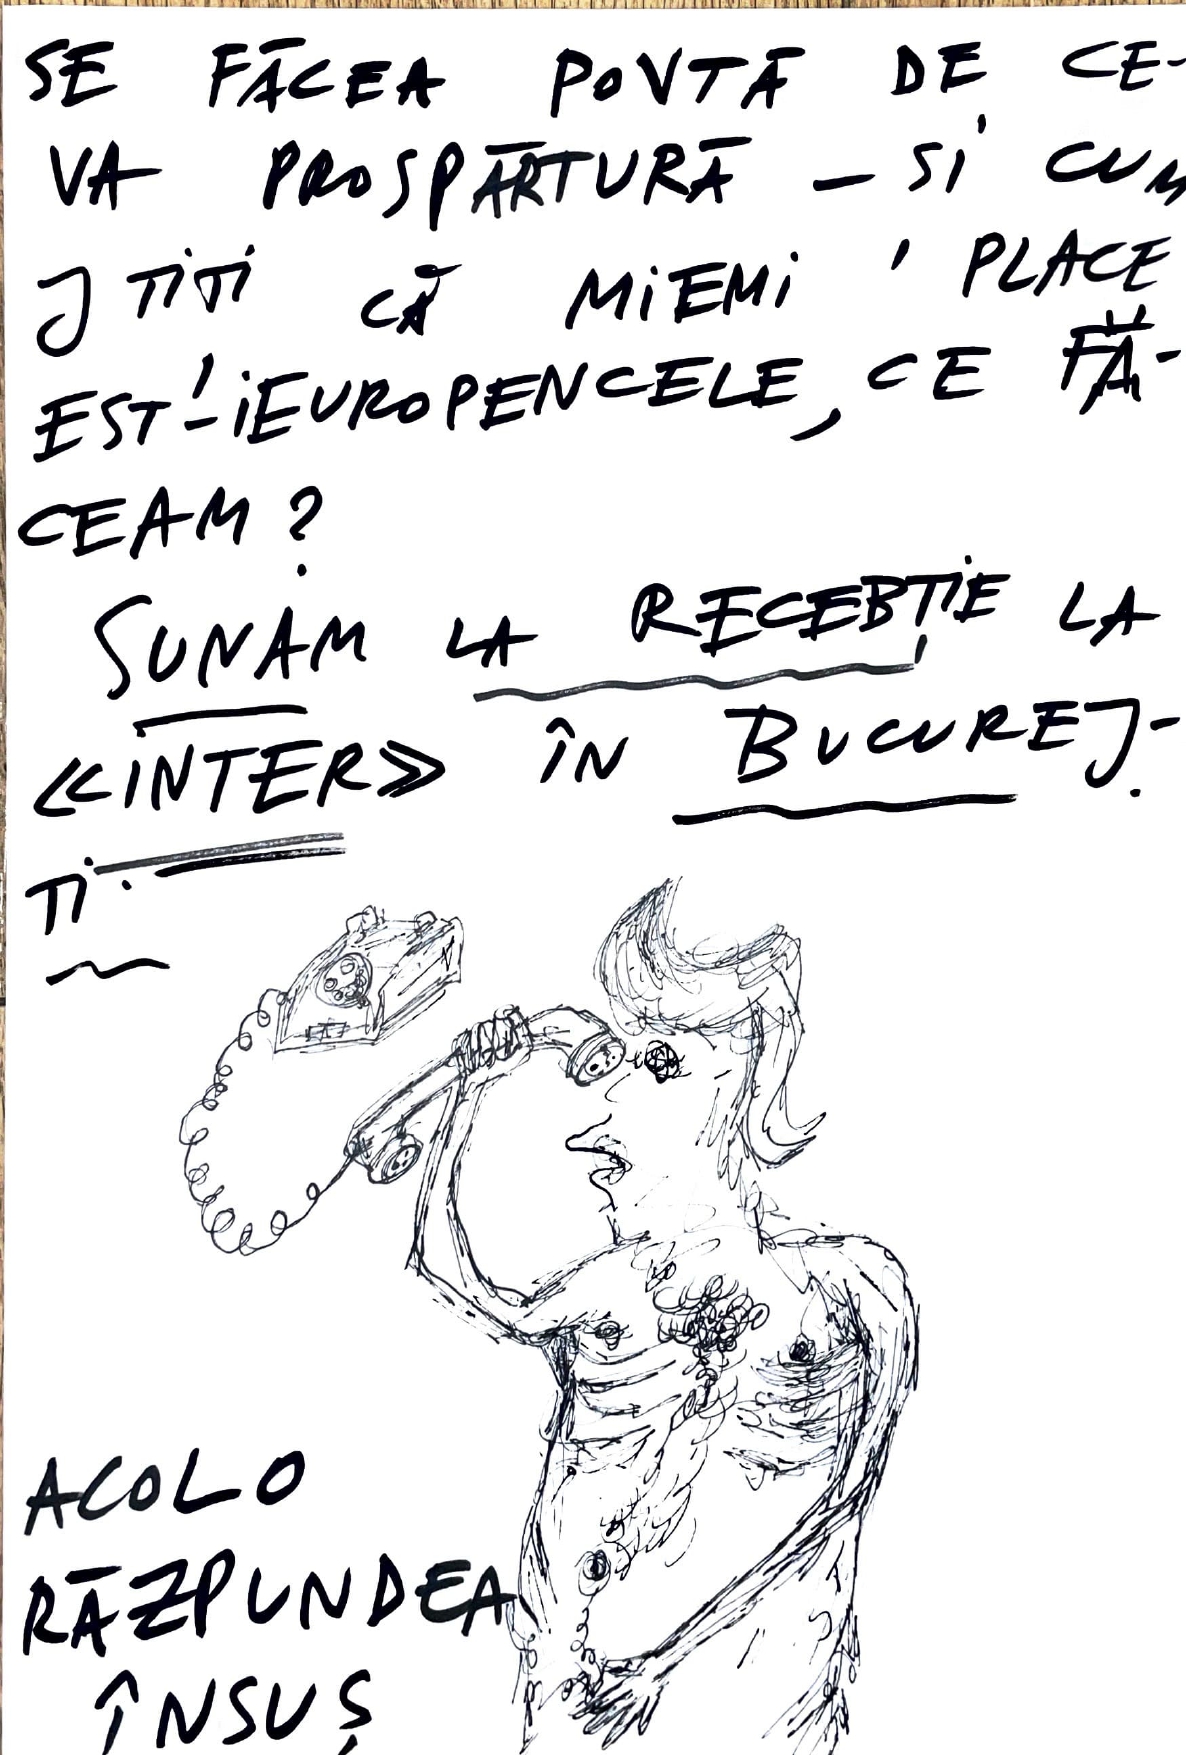 SE FĂCEA POVTĂ DE CE-
VA PROSPĂRTURĂ – SI CUM
JTITI CĂ MIEMI ' PLACE
EST'-IEUROPENCELE, CE FĂ-
CEAM?
SUNAM LA RECEBȚIE LA
«INTER» ÎN BUCUREJ-
TI.
ACOLO
RĂZPUNDEA
ÎNSUȘ